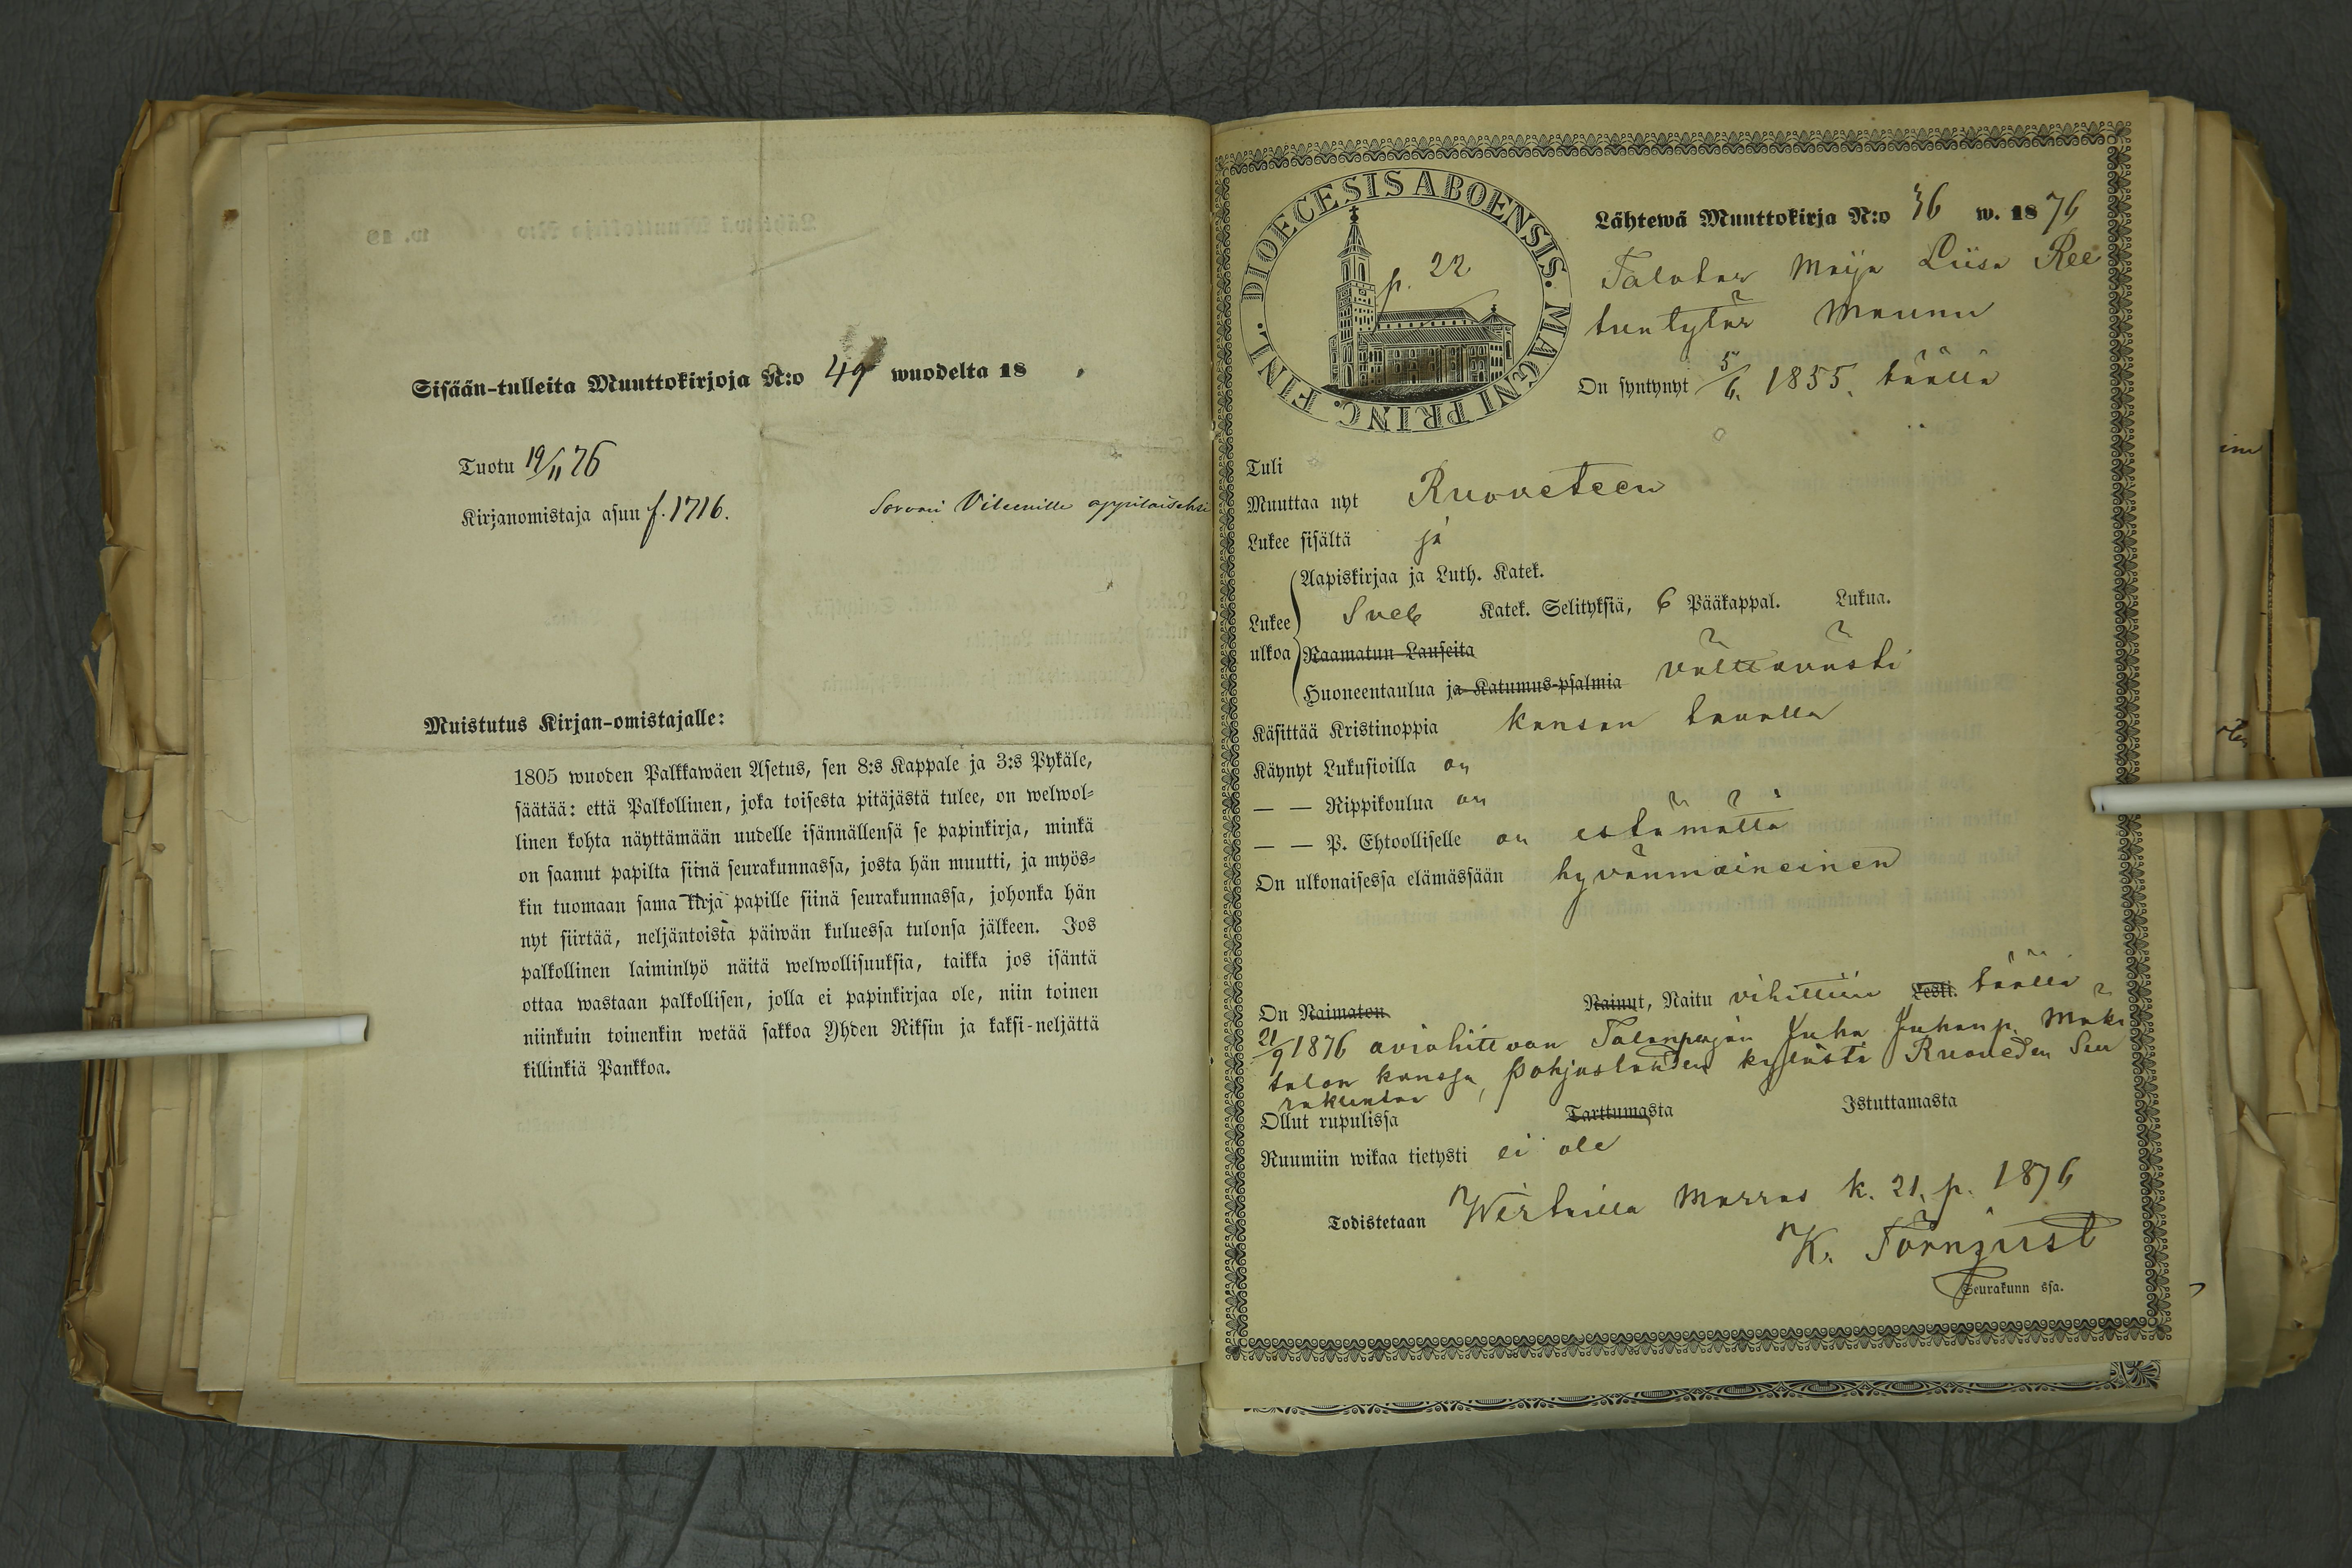 Sisään-tulleita Muuttokirjoja N:o 49 wuodelta 18
Tuotu 19/11 76
Kirjanomistaja asuu f. 1716.
Sorvari Vileenille oppilaiseksi
Muistutus Kirjan-omistajalle:
1805 wuoden Palkkawäen Asetus, sen 8:s Kappale ja 3:s Pykäle,
säätää: että Palkollinen, joka toisesta pitäjästä tulee, on welwol-
linen kohta näyttämään uudelle isännällensä se papinkirja, minkä
on saanut papilta siinä seurakunnassa, josta hän muutti, ja myös-
kin tuomaan sama kirja papille siinä seurakunnassa, johonka hän
nyt siirtää, neljäntoista päiwän kuluessa tulonsa jälkeen. Jos
palkollinen laiminlyö näitä welwollisuuksia, taikka jos isäntä
ottaa wastaan palkollisen, jolla ei papinkirjaa ole, niin toinen
niinkuin toinenkin wetää sakkoa Yhden Riksin ja kaksi-neljättä
killinkiä Pankkoa.
DIOECESIS ABOENSIS. MAGNI PRINC. FINL.
p. 22
Lähtewä Muuttokirja N:o 36 w. 1876
Talotar Maija Liisa Ree
tuntytär Maunu
On syntynyt 5/6. 1855. täällä
Tuli
Muuttaa nyt Ruoveteen
Lukee sisältä ja
Lukee ulkoa
Aapiskirjaa ja Luth. Katek.
Sveb Katek. Selityksiä, 6 Pääkappal. Lukua.
Raamatun Lauseita
Huoneentaulua ja Katumus-psalmia välttävästi
Käsittää Kristinoppia kansan tavalla
Käynyt Lukusioilla on
— — Rippikoulua on
— — P. Ehtoolliselle on estämättä
On ulkonaisessa elämässään hyvänmaineinen
On Naimaton Nainut, Naitu vihittiin Leski. täällä
21/9 1876 avioliittoon Talonpojan Juha Juhanp. Maki
talon kanssa, Pohjaslahden kylästä Ruoveden Seu
rakuntaa
Ollut rupulissa Tarttumasta Istuttamasta
Ruumiin wikaa tietysti ei ole
Todistetaan Wirtailla Marras k. 21. p. 1876
K. Törnqvist
Seurakunn ssa.